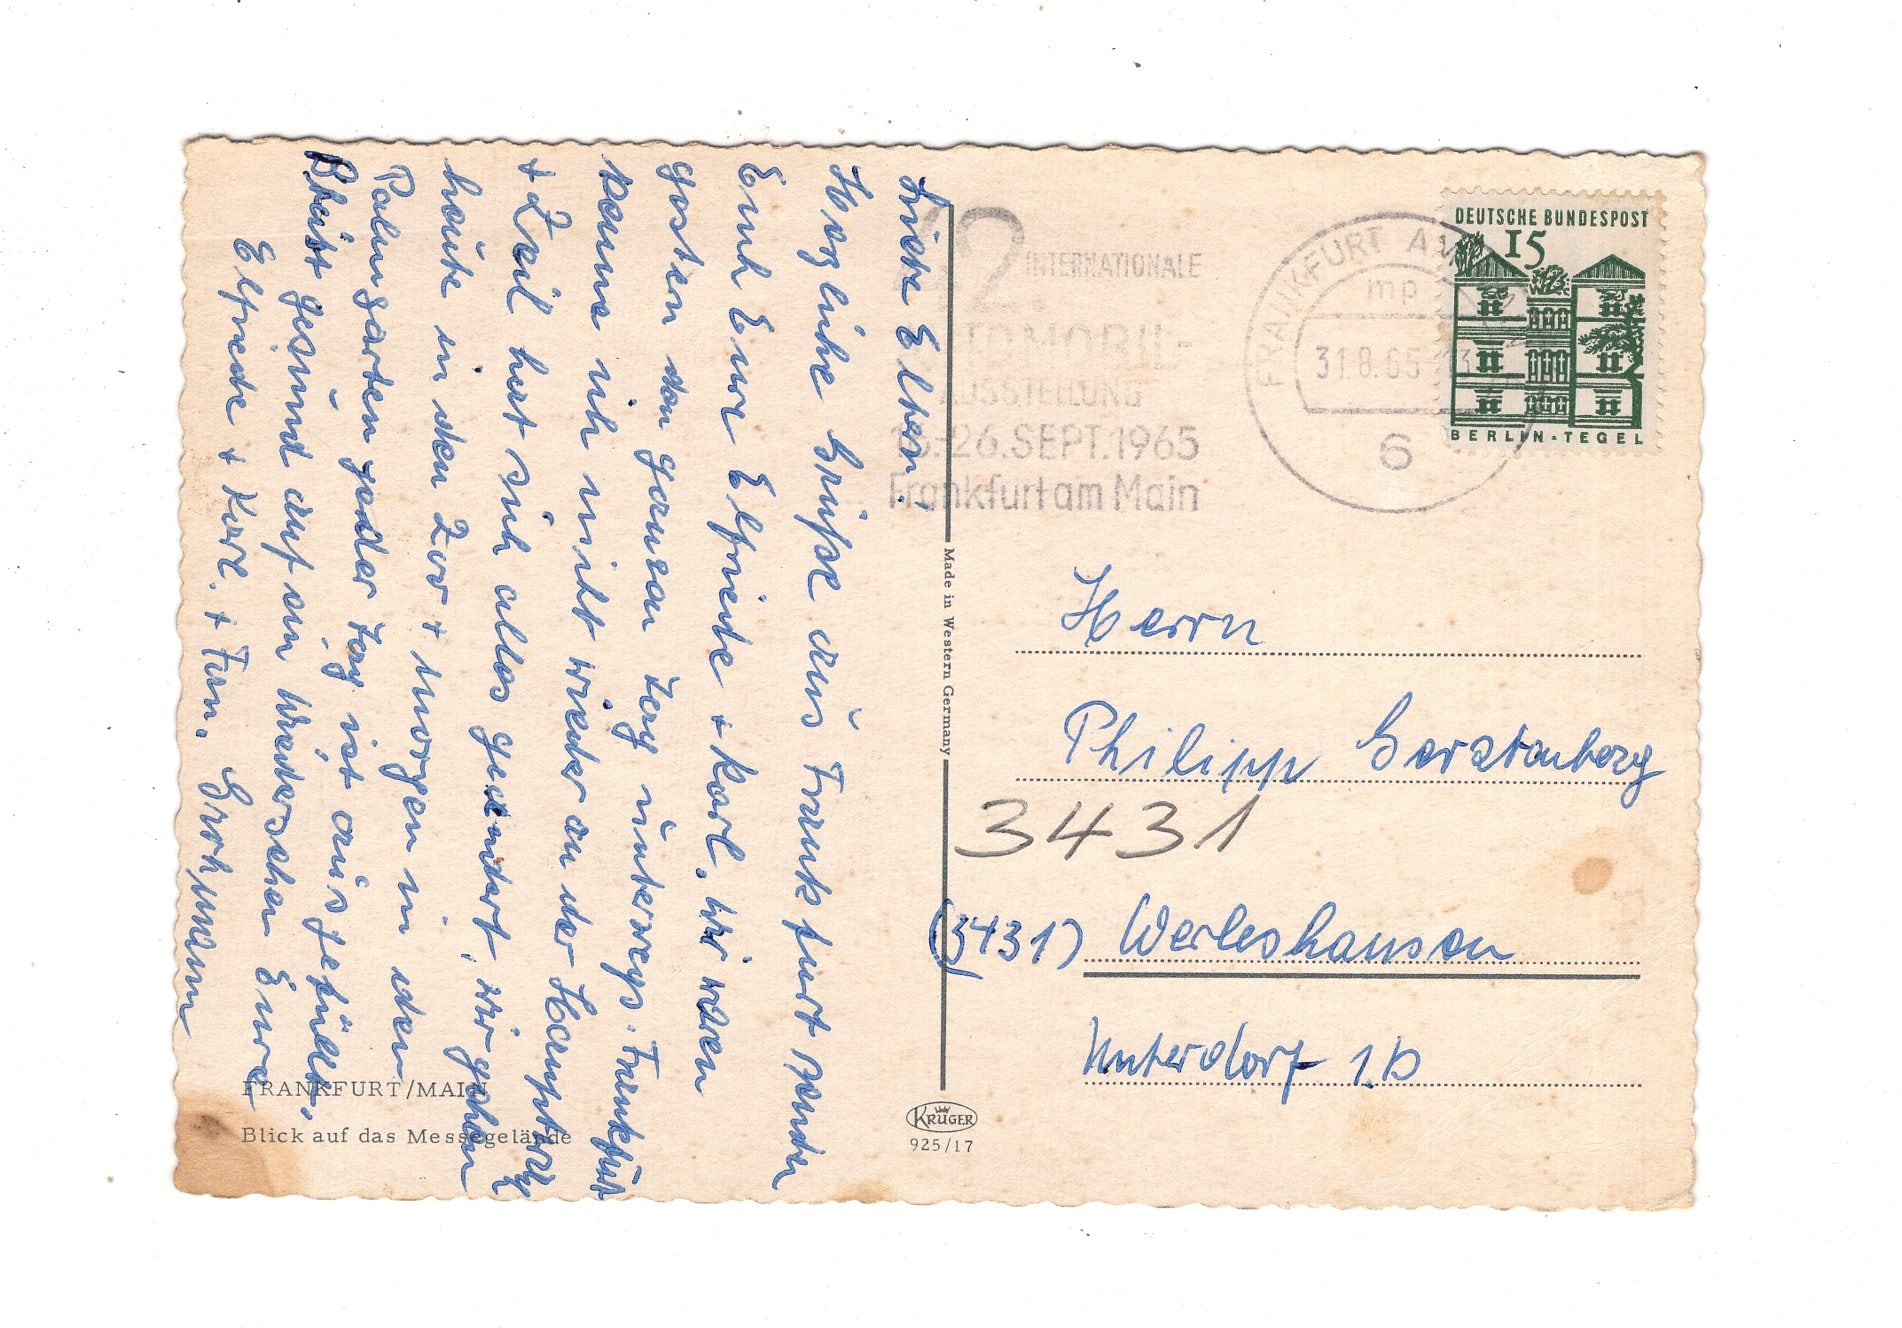 Liebe Eltern.
Herzliche Grüße aus Frankfurt senden
Euch Eure Elfriede + Karl. Wir waren
gestern den ganzen Tag unterwegs. Frankfurt
kenne ich nicht wieder an der Hauptwache
+ Zeil hat sich alles geändert, wir gehen
heute in den Zoo + Morgen in den
Palmgarten jeder Tag ist ausgefüllt.
Bleibt gesund auf ein Wiedersehen Eure
Elfriede + Karl. + Fam. Grohmann
FRANKFURT/MAIN
Blick auf das Messegelände
Made in Western Germany
KRÜGER
925/17
42.
INTERNATIONALE
AUTOMOBIL-
AUSSTELLUNG
16.-26. SEPT. 1965
Frankfurt am Main
FRANKFURT AM MAIN
mp
31.8.65-13
6
DEUTSCHE BUNDESPOST
15
BERLIN-TEGEL
Herrn
Philipp Gerstenberg
3431
(3431) Werleshausen
Unterdorf 1.b